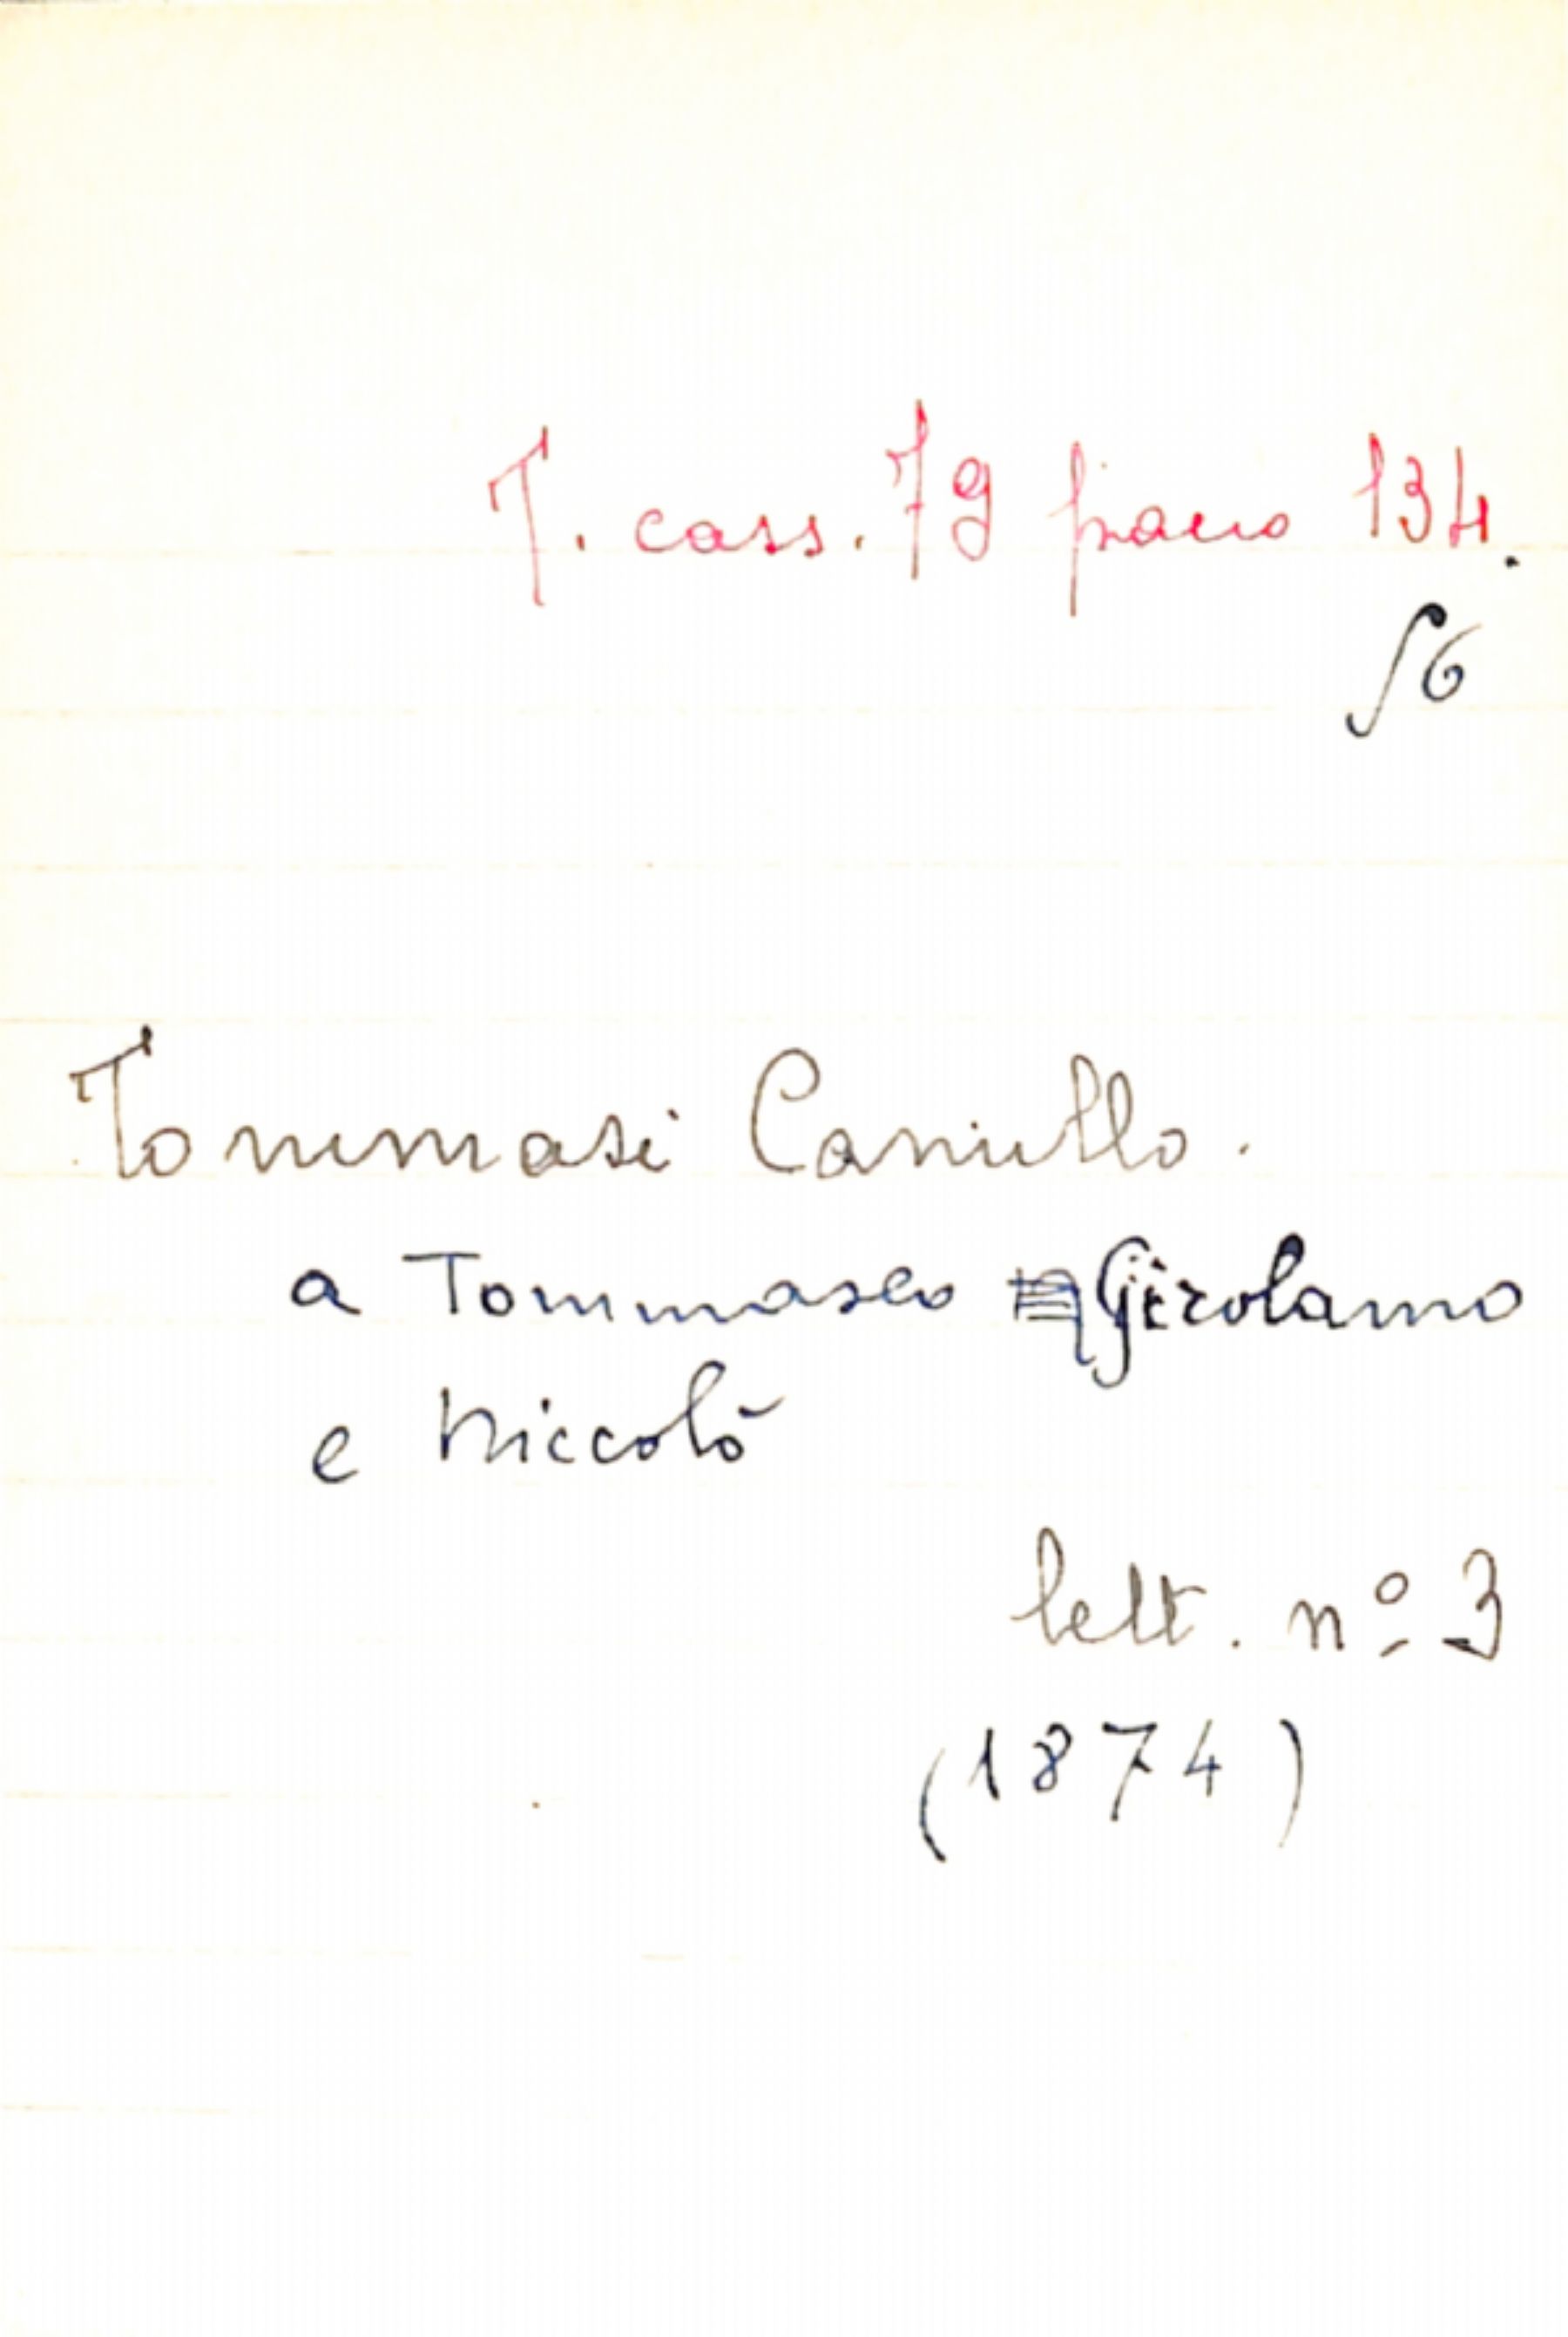 T. cass. 79 piano 134.
s6
Tommasi Camillo.
a Tommaseo Girolamo
e Niccolò
lett. nº 3
(1874)